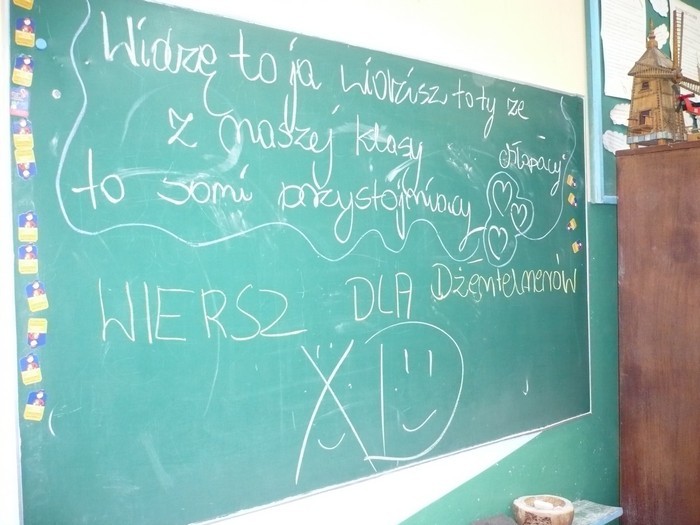 Widzę to ja widzisz to ty że
z naszej klasy chłopacy
to sami przystojniacy
WIERSZ DLA Dżentelmenów
XD